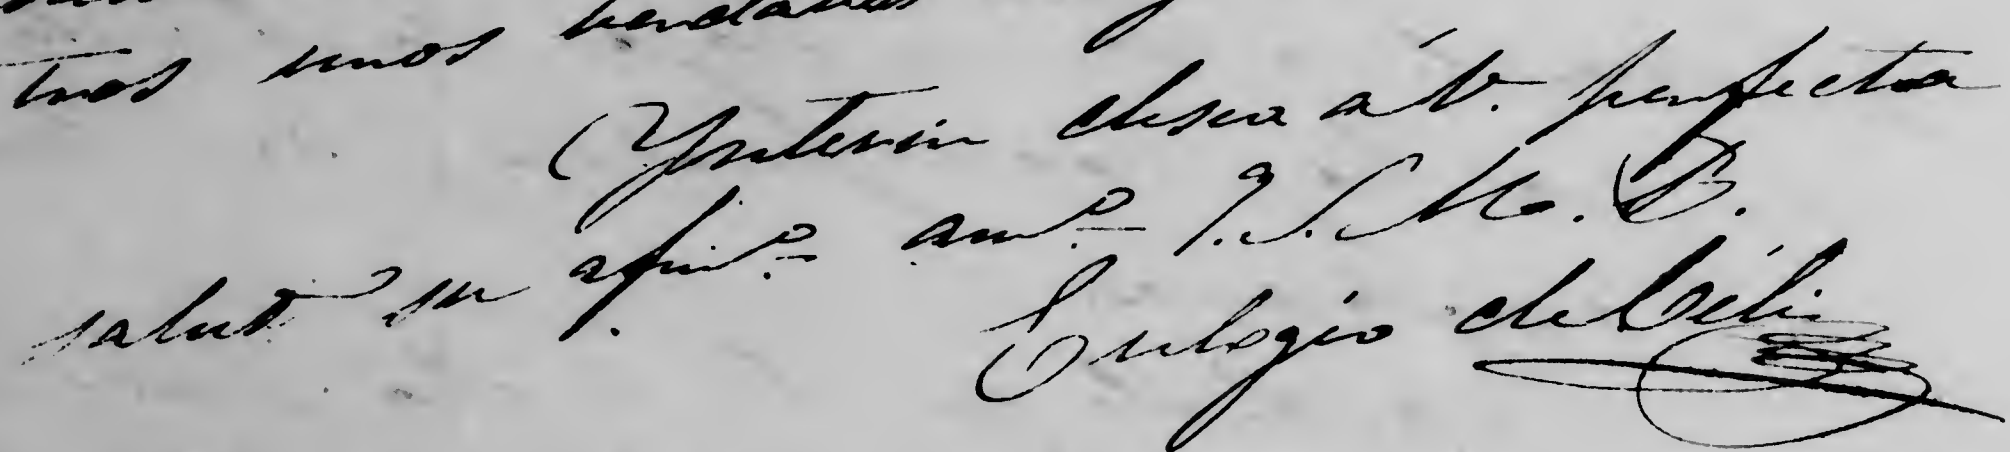 tros unos
Ynterin desea á V. perfecta
salud su afmo. amo. Q. S. M. B.
Eulogio de Célis